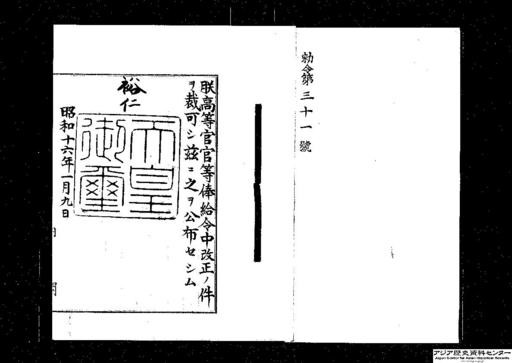 勅令第三十一號
朕高等官官等俸給令中改正ノ件
ヲ裁可シ茲ニ之ヲ公布セシム
裕仁
天皇
御璽
昭和十六年一月九日
アジア歴史資料センター
Japan Center for Asian Historical Records